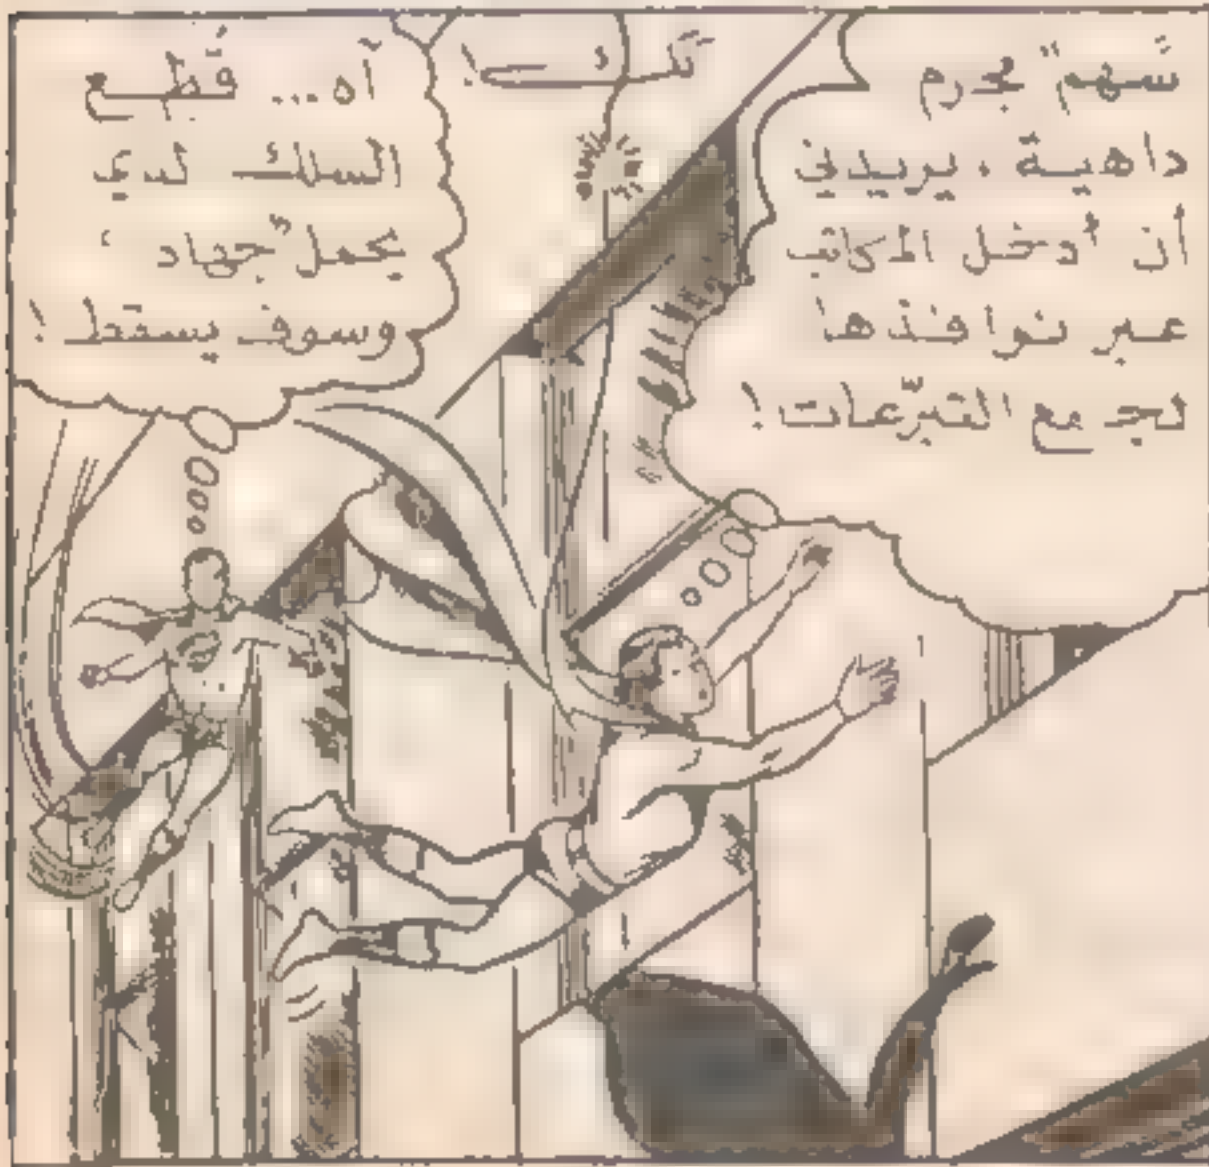 "سهم" مجرم
داهية، يريدني
أن أدخل المكاتب
عبر نوافذها
لجمع التبرّعات!
تك!
آه... قُطِع
السلك الذي
يحمل "جهاد"
وسوف يسقط!